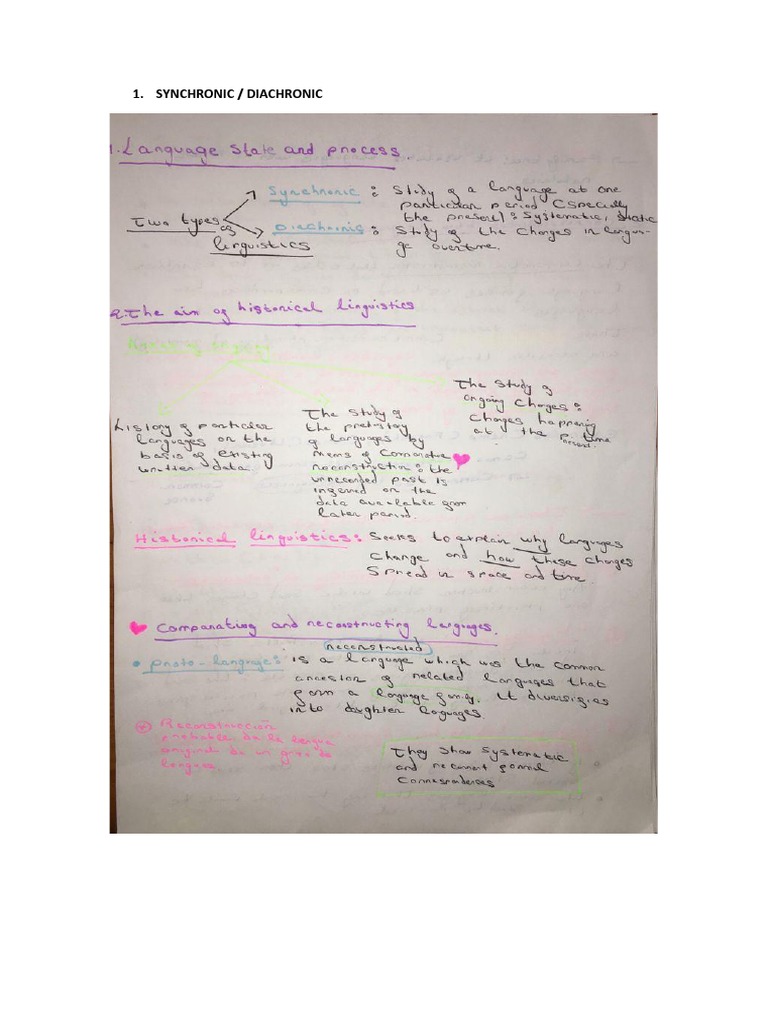 1. SYNCHRONIC / DIACHRONIC
1. Language state and process
Synchronic: Study of a language at one
particular period (specially
the present): systematic, static
Two types of linguistics
Diachronic: Study of the changes in langua-
ge overtime.
2. The aim of historical linguistics
history of particular
languages on the
basis of existing
written data.
The study of
the prehistory
of languages by
means of comparative
reconstruction: the
unrecorded past is
inferred on the
data available from
later period.
The study of
ongoing changes:
changes happening
at the present time
Historical linguistics: Seeks to explain why languages
change and how these changes
spread in space and time.
Comparating and reconstructing languages.
reconstructed
• proto-language: is a language which was the common
ancestor of related languages that
form a language family. It diversifies
into daughter languages.
Reconstrucción
probable de la lengua
original de un grupo de
lenguas
They show systematic
and recurrent formal
correspondences